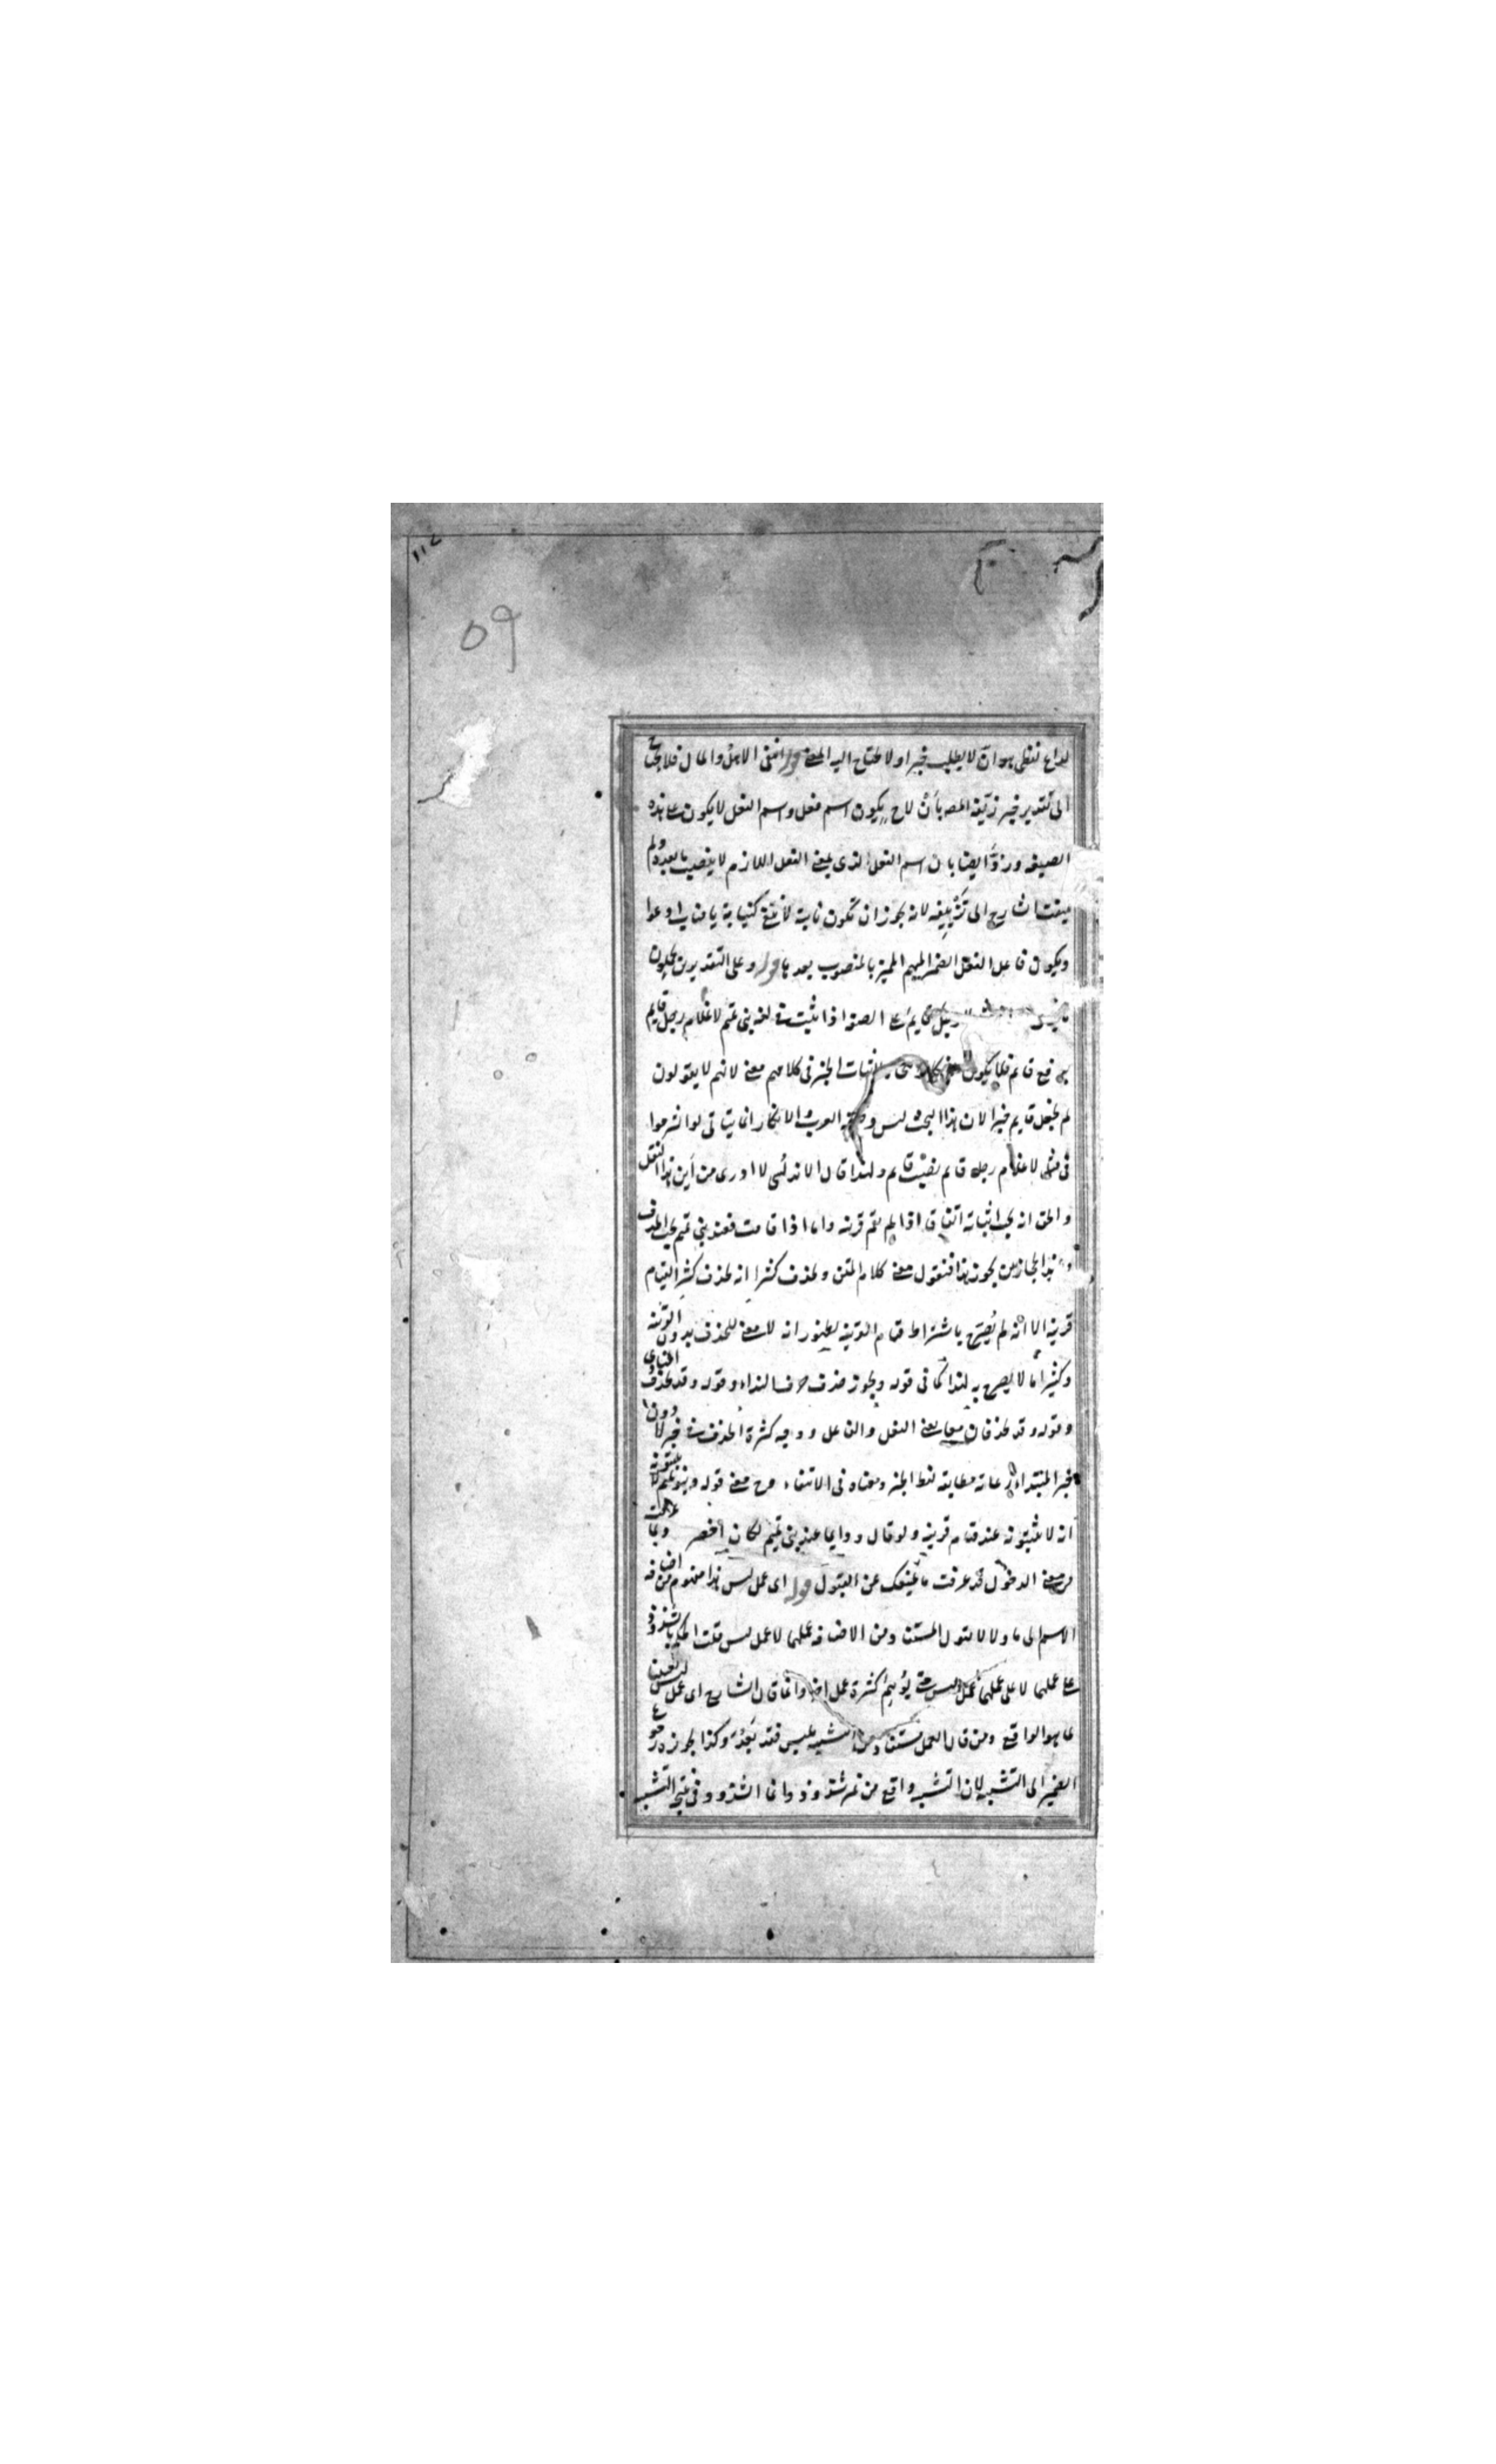 ١١٧
٥٩
لداع لفظي هو ان لا يطلب خبرا ولا يحتاج اليه المعنى قوله انتفى الاهل والمال فلا يحتاج
الى تقدير خبر زيّفه المصـ بأن لاح يكون اسم فعل واسم الفعل لا يكون على هذه
الصيغة وردّ ايضا بان اسم الفعل الذي بمعنى الفعل اللازم لا ينصب ما بعده ولم
يلتفت الشارح الى تزييفه لانه يجوز ان تكون
ويكون فاعل الفعل الضمير المبهم المميز بالمنصوب بعدها قوله وعلى التقديرين يحملون
رجل قايم على الصفة اذا ثبت في لغة بني تميم لا غلام رجل قايم
برفع قائم فلا يكون لاثبات الخبر في كلامهم معنى لانهم لا يقولون
لم يجعل قايم خبرا لان هذا البحث ليس وظيفة العرب والانكار انما يتأتى لو التزموا
في مثل لا غلام رجل قائم نصب قائم ولهذا قال الاندلسي لا ادري من اين هذا النقل
والحق انه يجب اثباته اتفاقا اذا لم تقم قرينة واما اذا قامت فعند بني تميم يجب الحذف
وعند الحجازيين يجوز هذا فنقول معنى كلام المتن ويحذف كثيرا انه يحذف كثيرا لقيام
قرينة الا انه لم يصرح باشتراط قيام القرينة لظهور انه لا معنى للحذف بدون القرينة
وكثيرا ما لا يصرح به لهذا كما في قوله ويجوز حذف حرف النداء وقوله وقد يحذف المنادى
وقوله وقد يحذفان معا يعني الفعل والفاعل ووجه كثرة الحذف في خبر لا دون
خبر المبتداء رعاية مطابقة لفظ الخبر ومعناه في الانتفاء وح معنى قوله وبنو تميم لا يثبتونه
انه لا يثبتونه عند قيام قرينة ولو قال ودايما عند بني تميم لكان اخصر
من معنى الدخول قد عرفت ما يمنعك عن القبول قوله اى عمل ليس هذا مفهوم من اضافة
الاسم الى ما ولا لا لقول المستفاد من الاضافة عملهما لا عمل ليس قلت الحكم بالشذوذ
على عملهما لا على عملهما عمل ليس حتى يوهم كثرة عمل اخر وانما قال الشارح اى عمل ليس
لما هو الواقع ومن قال العمل مستفاد من التشبيه بليس فقد بعد وكذا يجوز رجوع
الضمير الى التشبيه لان التشبيه واقع من غير شذوذ وانما الشذوذ في نتيجة التشبيه